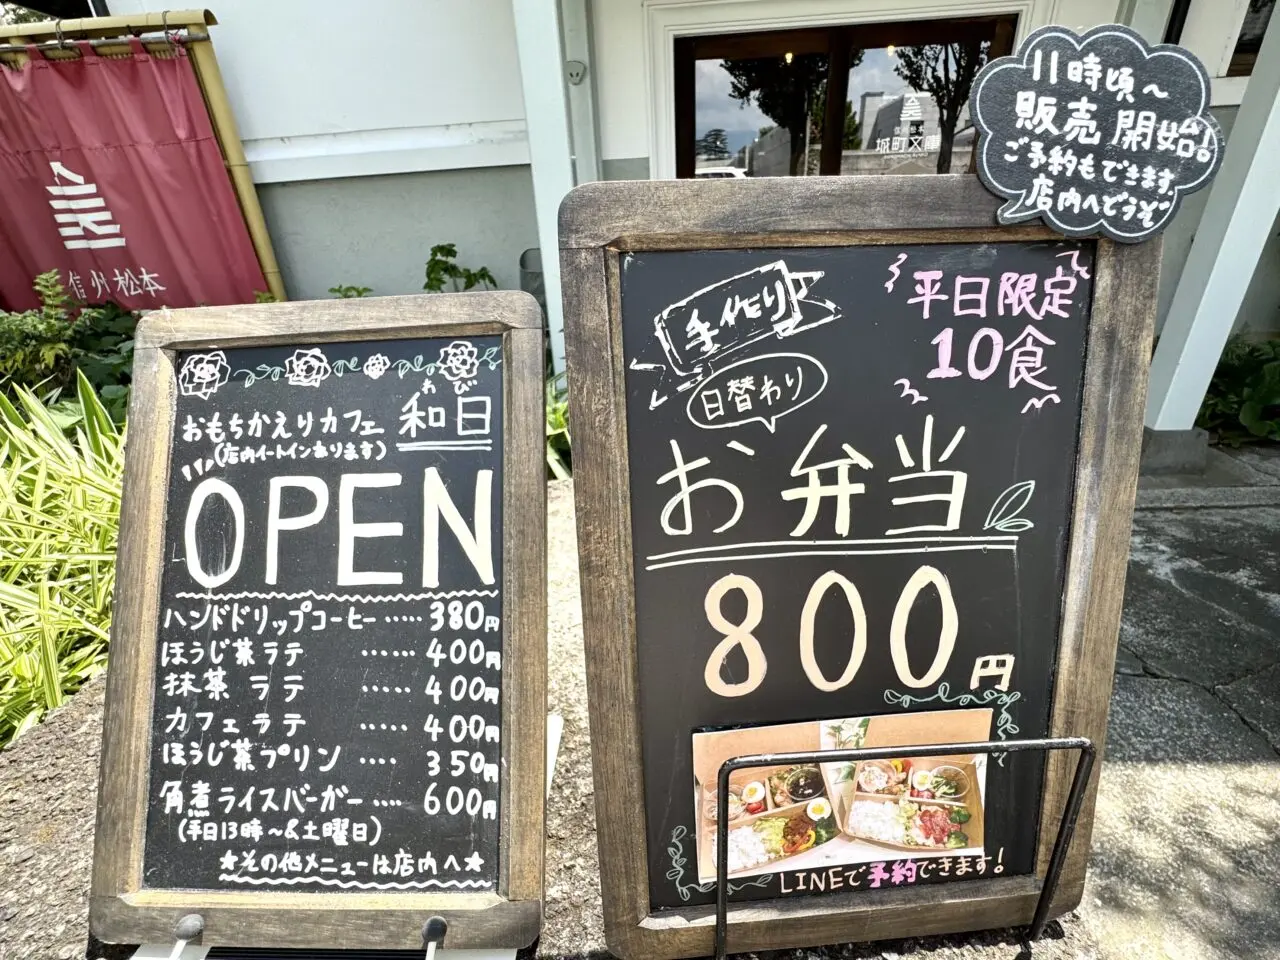 信州松本
信州松本
城町文庫
わび
おもちかえりカフェ 和日
(店内イートインあります)
OPEN
ハンドドリップコーヒー…… 380円
ほうじ茶ラテ …… 400円
抹茶 ラテ …… 400円
カフェラテ …… 400円
ほうじ茶プリン …… 350円
角煮ライスバーガー …… 600円
(平日13時〜&土曜日)
★その他メニューは店内へ★
11時頃〜
販売開始!
ご予約もできます。
店内へどうぞ
手作り
平日限定
10食
日替わり
お弁当
800円
LINEで予約できます!